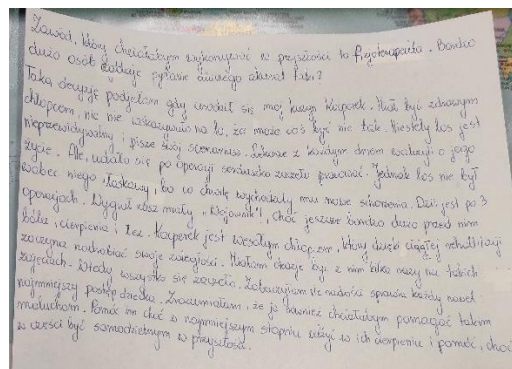 Zawód, który chciałabym wykonywać w przyszłości to fizjoterapeuta. Bardzo
dużo osób zadaje pytanie dlaczego akurat taki?
Taką decyzję podjęłam gdy urodził się mój kuzyn Kacperek. Miał być zdrowym
chłopcem, nic nie wskazywało na to, że może coś być nie tak. Niestety los jest
nieprzewidywalny i pisze swój scenariusz. Lekarze z każdym dniem walczyli o jego
życie. Ale, udało się po operacji serduszko zaczęło pracować. Jednak los nie był
wobec niego łaskawy, bo co chwilę wychodziły mu nowe schorzenia. Dziś jest po 3
operacjach. Wygrał nasz mały „Wojownik”, choć jeszcze bardzo dużo przed nim
bólu, cierpienia i łez. Kacperek jest wesołym chłopcem, który dzięki ciągłej rehabilitacji
zaczyna nadrabiać swoje zaległości. Miałam okazję być z nim kilka razy na takich
zajęciach. Wtedy wszystko się zaczęło. Zobaczyłam ile radości sprawia każdy nawet
najmniejszy postęp dziecka. Zrozumiałam, że ja również chciałabym pomagać takim
maluchom. Pomóc im choć w najmniejszym stopniu ulżyć w ich cierpieniu i pomóc, choć
w części być samodzielnym w przyszłości.